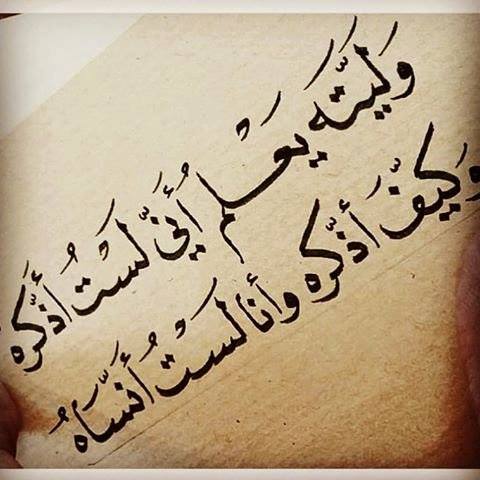 وَليتَّه يَعْلم أُنيَّ لَسْت أُذكَّره
وَكيفَّ أَذكَّره وأنا لَسْت أُنسَّاهُ